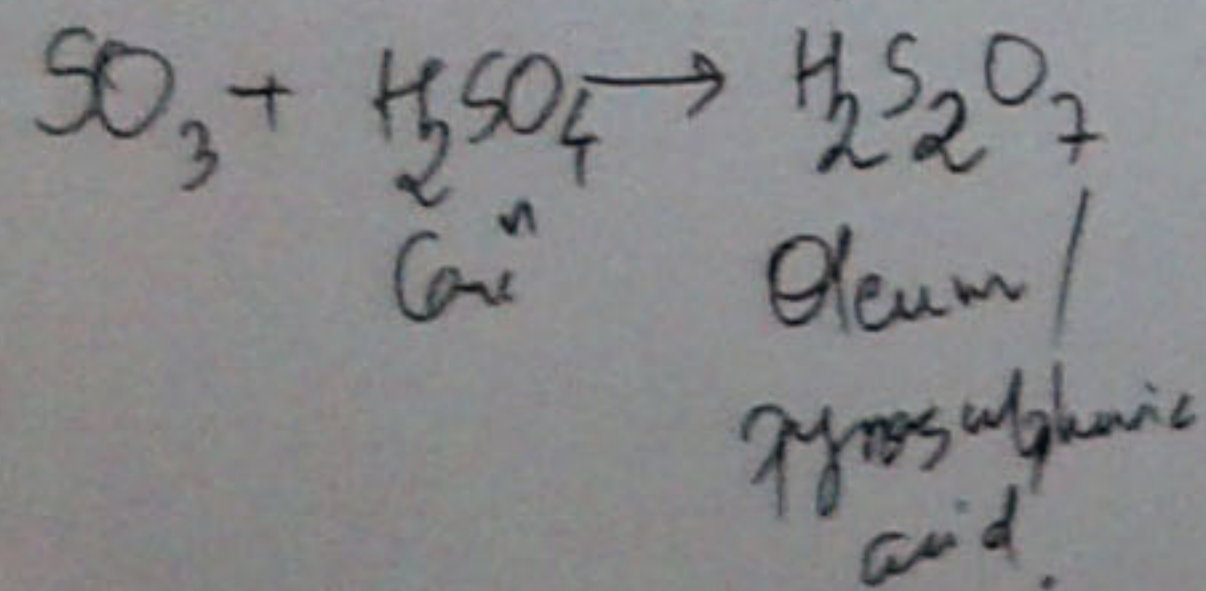 SO₃ + H₂SO₄ → H₂S₂O₇
Concⁿ Oleum /
pyrosulphuric
acid.